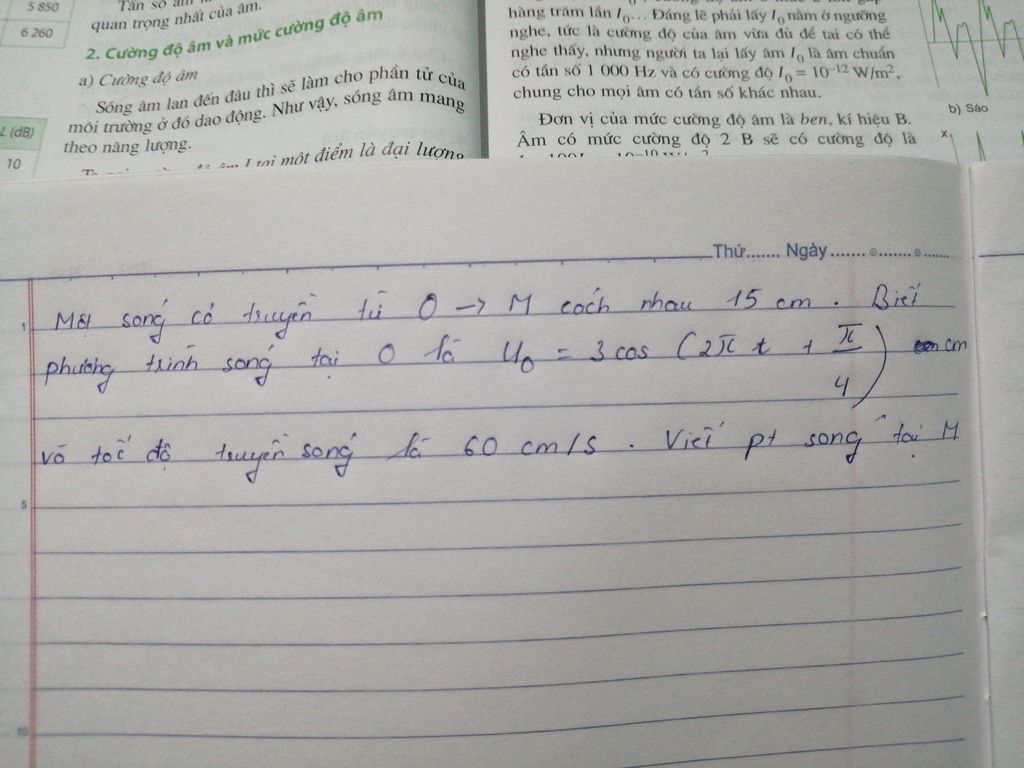 5 850
6 260
L (dB)
10
Tần số âm
quan trọng nhất của âm.
2. Cường độ âm và mức cường độ âm
a) Cường độ âm
Sóng âm lan đến đâu thì sẽ làm cho phần tử của
môi trường ở đó dao động. Như vậy, sóng âm mang
theo năng lượng.
I tại một điểm là đại lượng
hàng trăm lần I₀... Đáng lẽ phải lấy I₀ nằm ở ngưỡng
nghe, tức là cường độ của âm vừa đủ để tai có thể
nghe thấy, nhưng người ta lại lấy âm I₀ là âm chuẩn
có tần số 1 000 Hz và có cường độ I₀ = 10⁻¹² W/m²,
chung cho mọi âm có tần số khác nhau.
Đơn vị của mức cường độ âm là ben, kí hiệu B.
Âm có mức cường độ 2 B sẽ có cường độ là
b) Sáo
x
Thứ....... Ngày.......
1
Một sóng có truyền từ O -> M cách nhau 15 cm. Biết
phương trình sóng tại O là u₀ = 3 cos (2π t + π/4) cm
và tốc độ truyền sóng là 60 cm/s. Viết pt sóng tại M
5
10